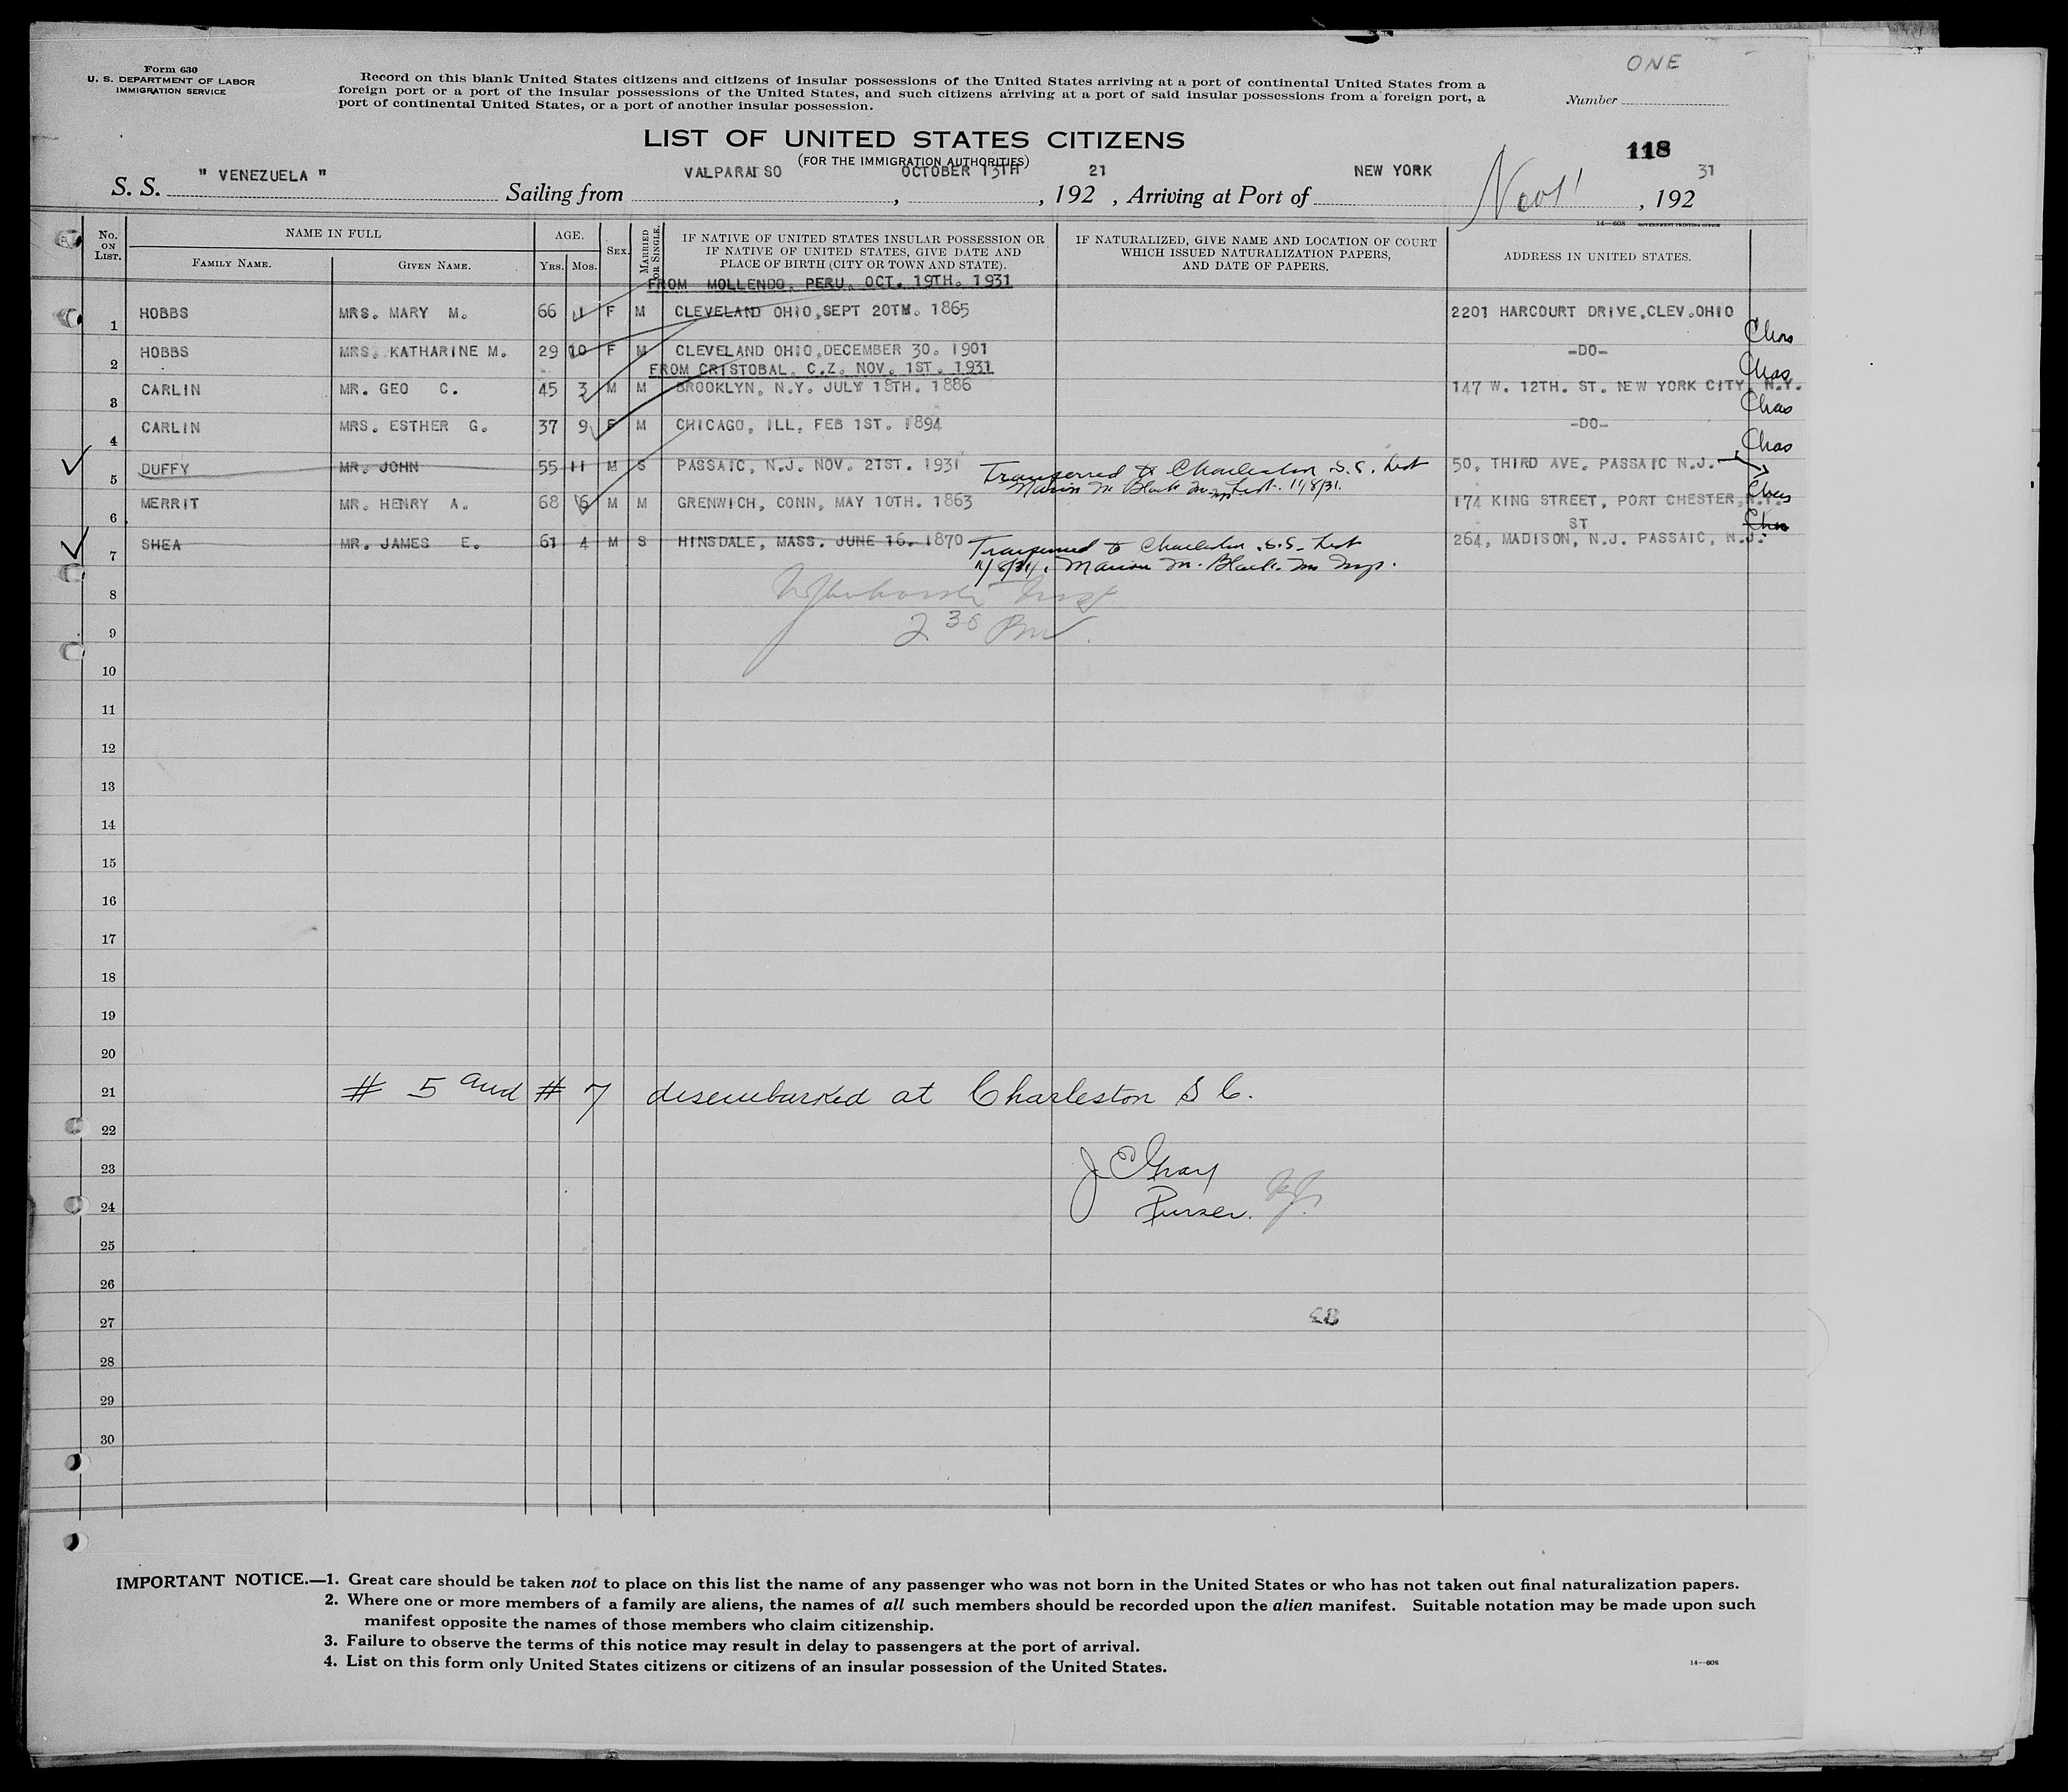 ONE
Form 630
U. S. DEPARTMENT OF LABOR
IMMIGRATION SERVICE
Record on this blank United States citizens and citizens of insular possessions of the United States arriving at a port of continental United States from a
foreign port or a port of the insular possessions of the United States, and such citizens arriving at a port of said insular possessions from a foreign port, a
port of continental United States, or a port of another insular possession.
Number
LIST OF UNITED STATES CITIZENS
(FOR THE IMMIGRATION AUTHORITIES)
118
S. S. " VENEZUELA " Sailing from VALPARAISO, OCTOBER 13TH, 192 21, Arriving at Port of NEW YORK Nov, 192 31
14—608 GOVERNMENT PRINTING OFFICE
No. ON LIST. NAME IN FULL FAMILY NAME. GIVEN NAME. AGE. YRS. MOS. SEX. MARRIED OR SINGLE. IF NATIVE OF UNITED STATES INSULAR POSSESSION OR IF NATIVE OF UNITED STATES, GIVE DATE AND PLACE OF BIRTH (CITY OR TOWN AND STATE). IF NATURALIZED, GIVE NAME AND LOCATION OF COURT WHICH ISSUED NATURALIZATION PAPERS, AND DATE OF PAPERS. ADDRESS IN UNITED STATES.
FROM MOLLENDO. PERU. OCT. 19TH. 1931
1 HOBBS MRS. MARY M. 66 1 F M CLEVELAND OHIO,SEPT 20TM. 1865 2201 HARCOURT DRIVE,CLEV.OHIO Chas
2 HOBBS MRS. KATHARINE M. 29 10 F M CLEVELAND OHIO,DECEMBER 30. 1901 -DO- Chas
FROM CRISTOBAL. C.Z. NOV. 1ST. 1931
3 CARLIN MR. GEO C. 45 3 M M BROOKLYN, N.Y. JULY 18TH. 1886 147 W. 12TH. ST. NEW YORK CITY, N.Y. Chas
4 CARLIN MRS. ESTHER G. 37 9 F M CHICAGO, ILL, FEB 1ST. 1894 -DO- Chas
5 DUFFY MR. JOHN 55 11 M S PASSAIC, N.J. NOV. 21ST. 1931 Transferred to Charleston S.C. List 50, THIRD AVE. PASSAIC N.J.
Marion M Black 11/8/31.
6 MERRIT MR. HENRY A. 68 6 M M GRENWICH, CONN, MAY 10TH. 1863 174 KING STREET, PORT CHESTER, N.Y. Chas
ST Chas
7 SHEA MR. JAMES E. 61 4 M S HINSDALE, MASS. JUNE 16. 1870 Transferred to Charleston S.C. List 264, MADISON, N.J. PASSAIC, N.J.
11/8/31. Marion M. Black Insp.
8
2 30 Pm
9
10
11
12
13
14
15
16
17
18
19
20
21 # 5 and # 7 disembarked at Charleston S C.
22
23 J C Gray
24 Purser.
25
26
27 48
28
29
30
IMPORTANT NOTICE.—1. Great care should be taken not to place on this list the name of any passenger who was not born in the United States or who has not taken out final naturalization papers.
2. Where one or more members of a family are aliens, the names of all such members should be recorded upon the alien manifest. Suitable notation may be made upon such
manifest opposite the names of those members who claim citizenship.
3. Failure to observe the terms of this notice may result in delay to passengers at the port of arrival.
4. List on this form only United States citizens or citizens of an insular possession of the United States.
14—608